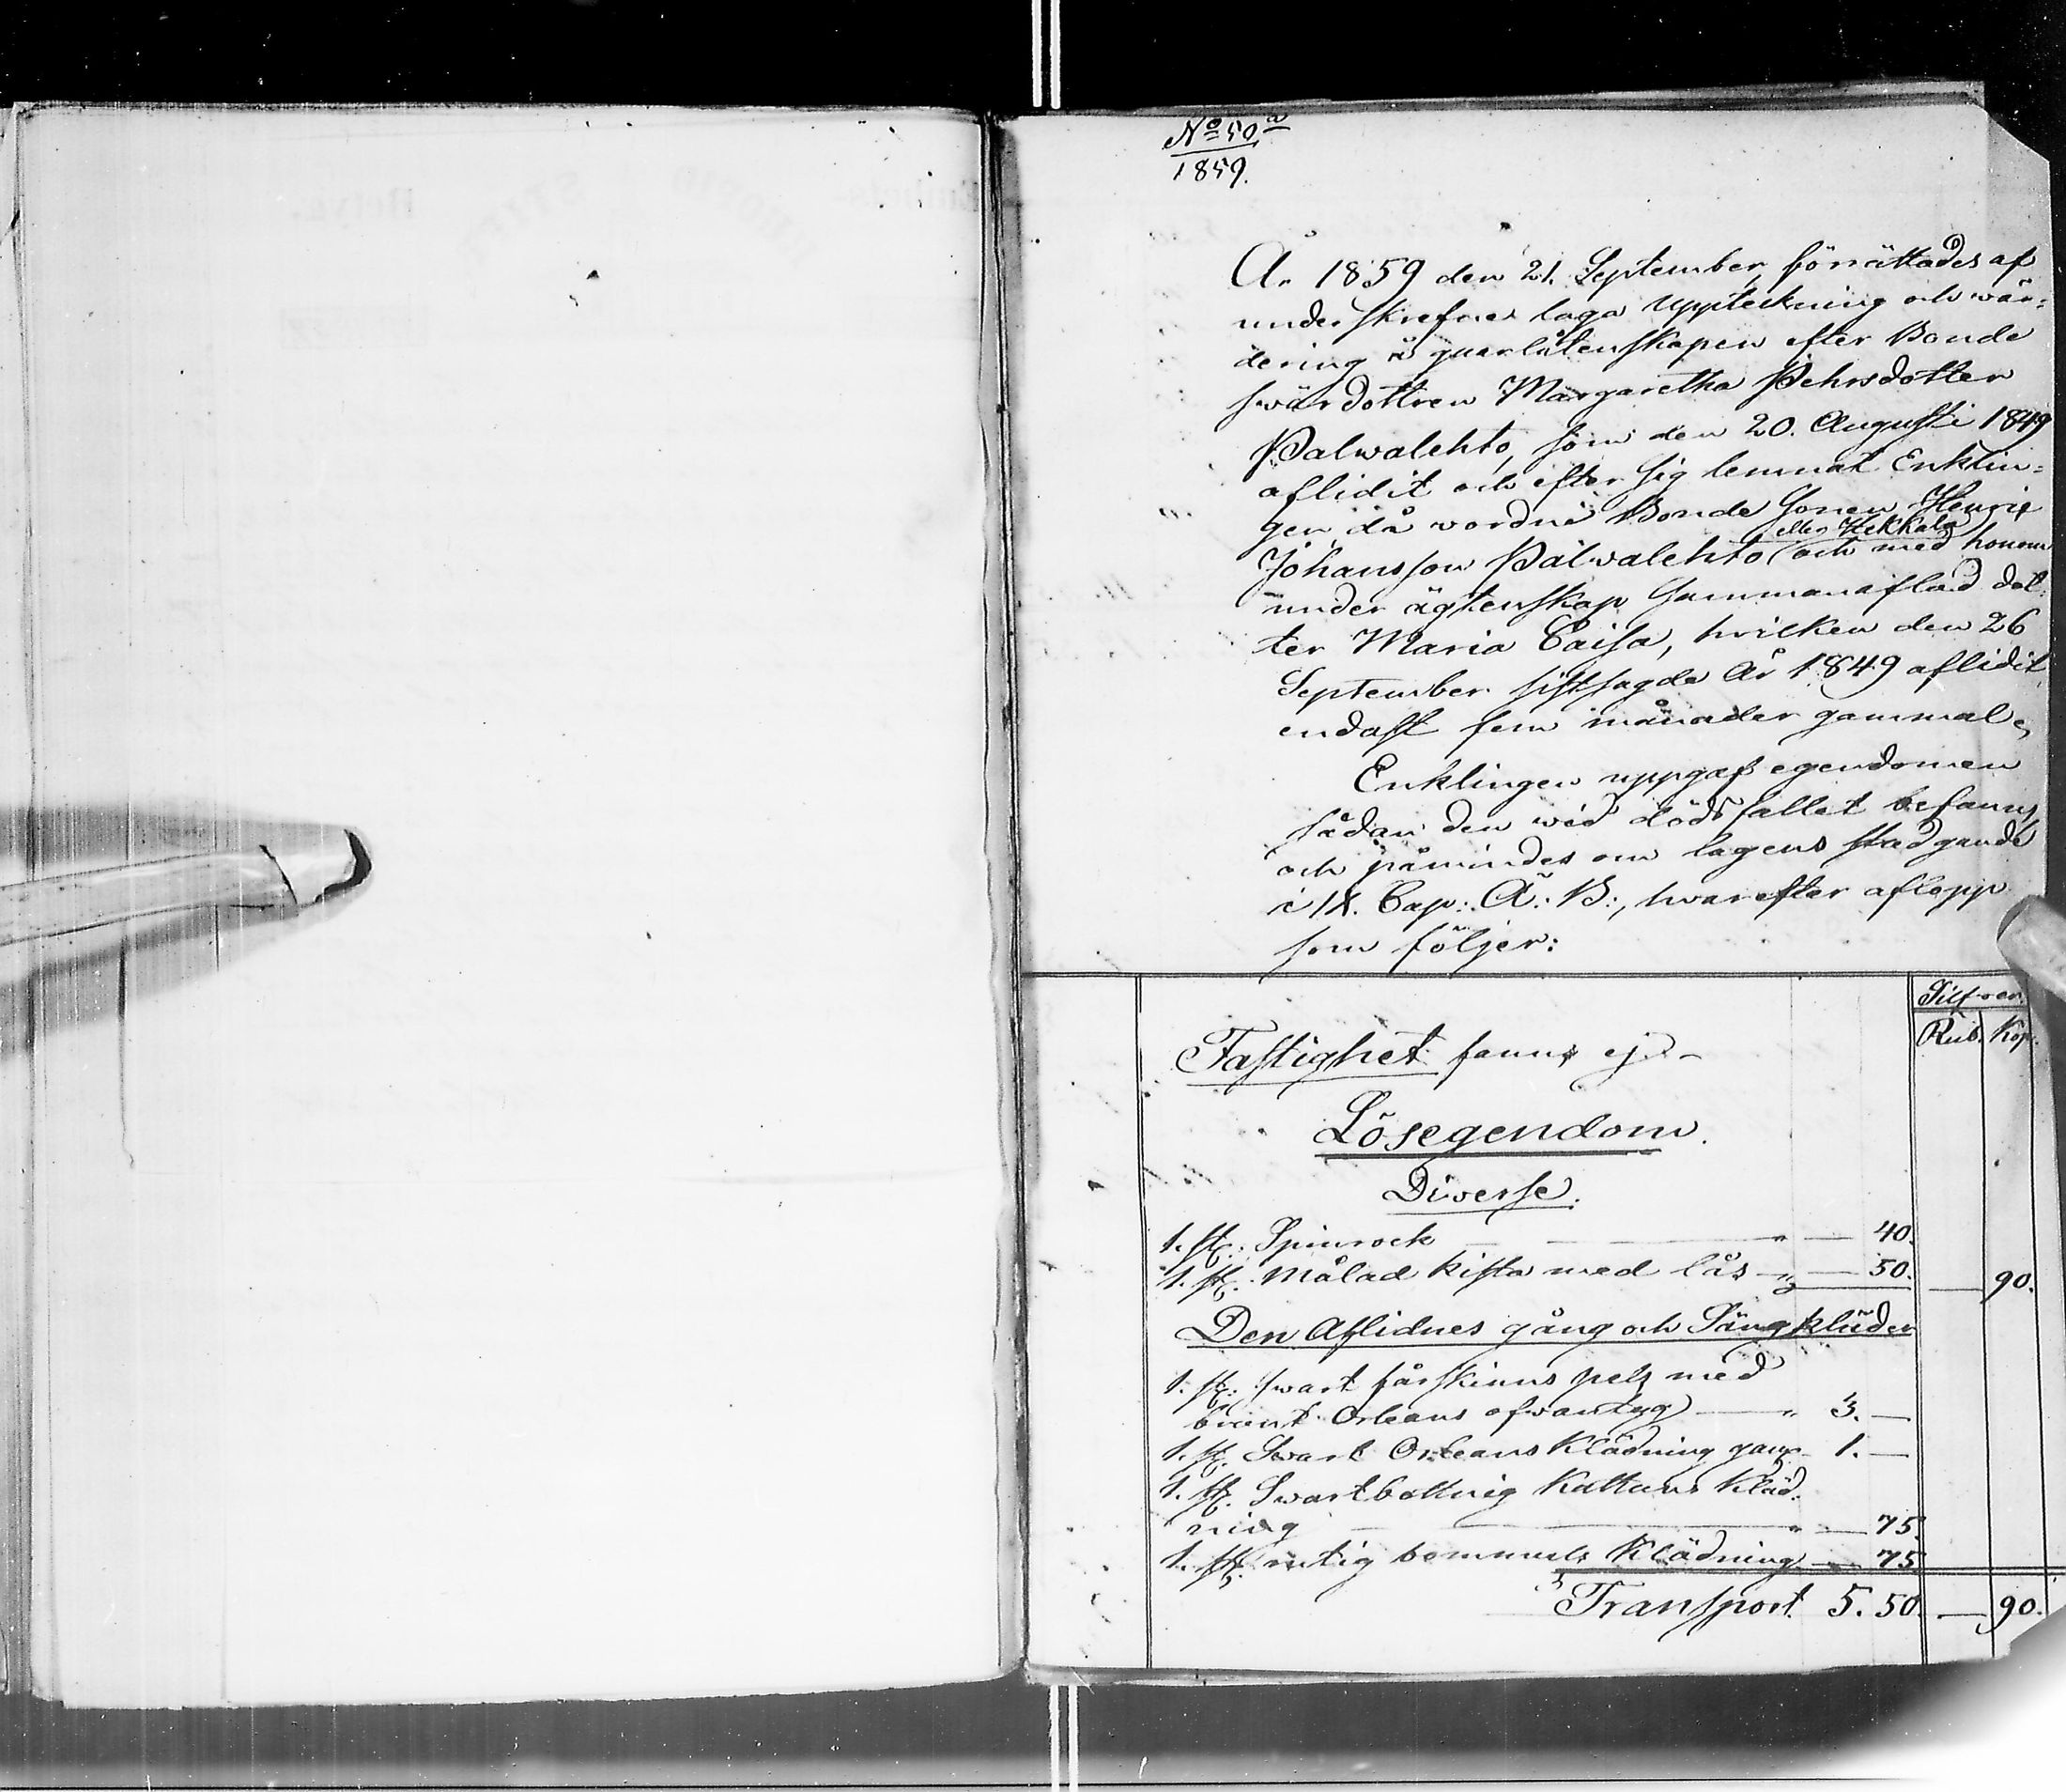 No 50 a
1859.
År 1859 den 21. September, förrättades af
underskrefne laga uppteckning och wär=
dering å quarlåtenskapen efter Bonde
swärdottren Margaretha Pehrsdotter
Palwalehto, som den 20. Augusti 1849
aflidit och efter sig lemnat Enklin=
gen då wordne Bonde Sonen Henrix
eller Yrkkala
Johansson Palwalehto och med honom
under ägtenskap sammanaflad dot
ter Maria Caisa, hvilken den 26
September sistsagde År 1849 aflidit,
endast fem månader gammal,
Enklingen uppgaf egendomen
sådan den wid dödsfallet befanns,
och påmindes om lagens stadgande
i IX. Cap: Ä: B:, hwarefter aflopp
som följer:
Silfver
Rub. Kop.
Fastighet fanns ej –
Lösegendom.
Diverse.
1. st: Spinrock — " — 40.
1. st: Målad kista med lås " — 50. — 90.
Den Aflidnes gång och Sängkläder
1. st: swart fårskinns pels med
brunt Orleans ofwantyg — " 3. —
1. st. Swart Orleans Klädning gam. 1. —
1. st. Swartbottnig Kattuns Kläd=
ning — " — 75.
1. st. rutig bommuls Klädning — 75
Transport 5. 50. — 90.